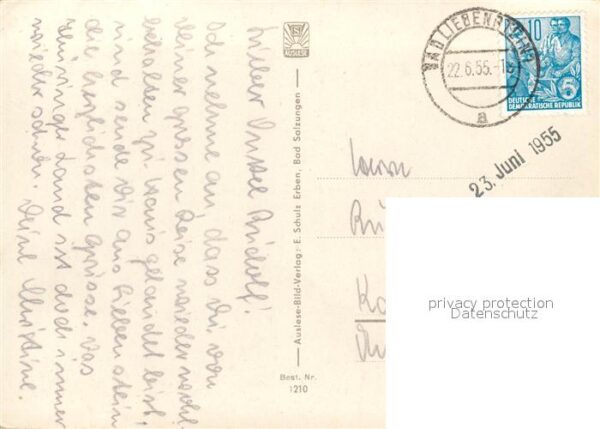 Lieber Onkel Rudolf!
Ich nehme an, dass Du von
Deiner grossen Reise wieder wohl
behalten zu Haus gelandet bist,
und sende Dir aus Liebenstein
die herzlichsten Grüsse. Das
Thüringer Land ist doch immer
wieder schön. Deine Christine.
AUSLESE
Auslese-Bild-Verlag: E. Schulz Erben, Bad Salzungen
Best. Nr.
1210
BAD LIEBENSTEIN
22.6.55.
a
10
5
DEUTSCHE
DEMOKRATISCHE REPUBLIK
23. Juni 1955
Herrn
privacy protection
Datenschutz